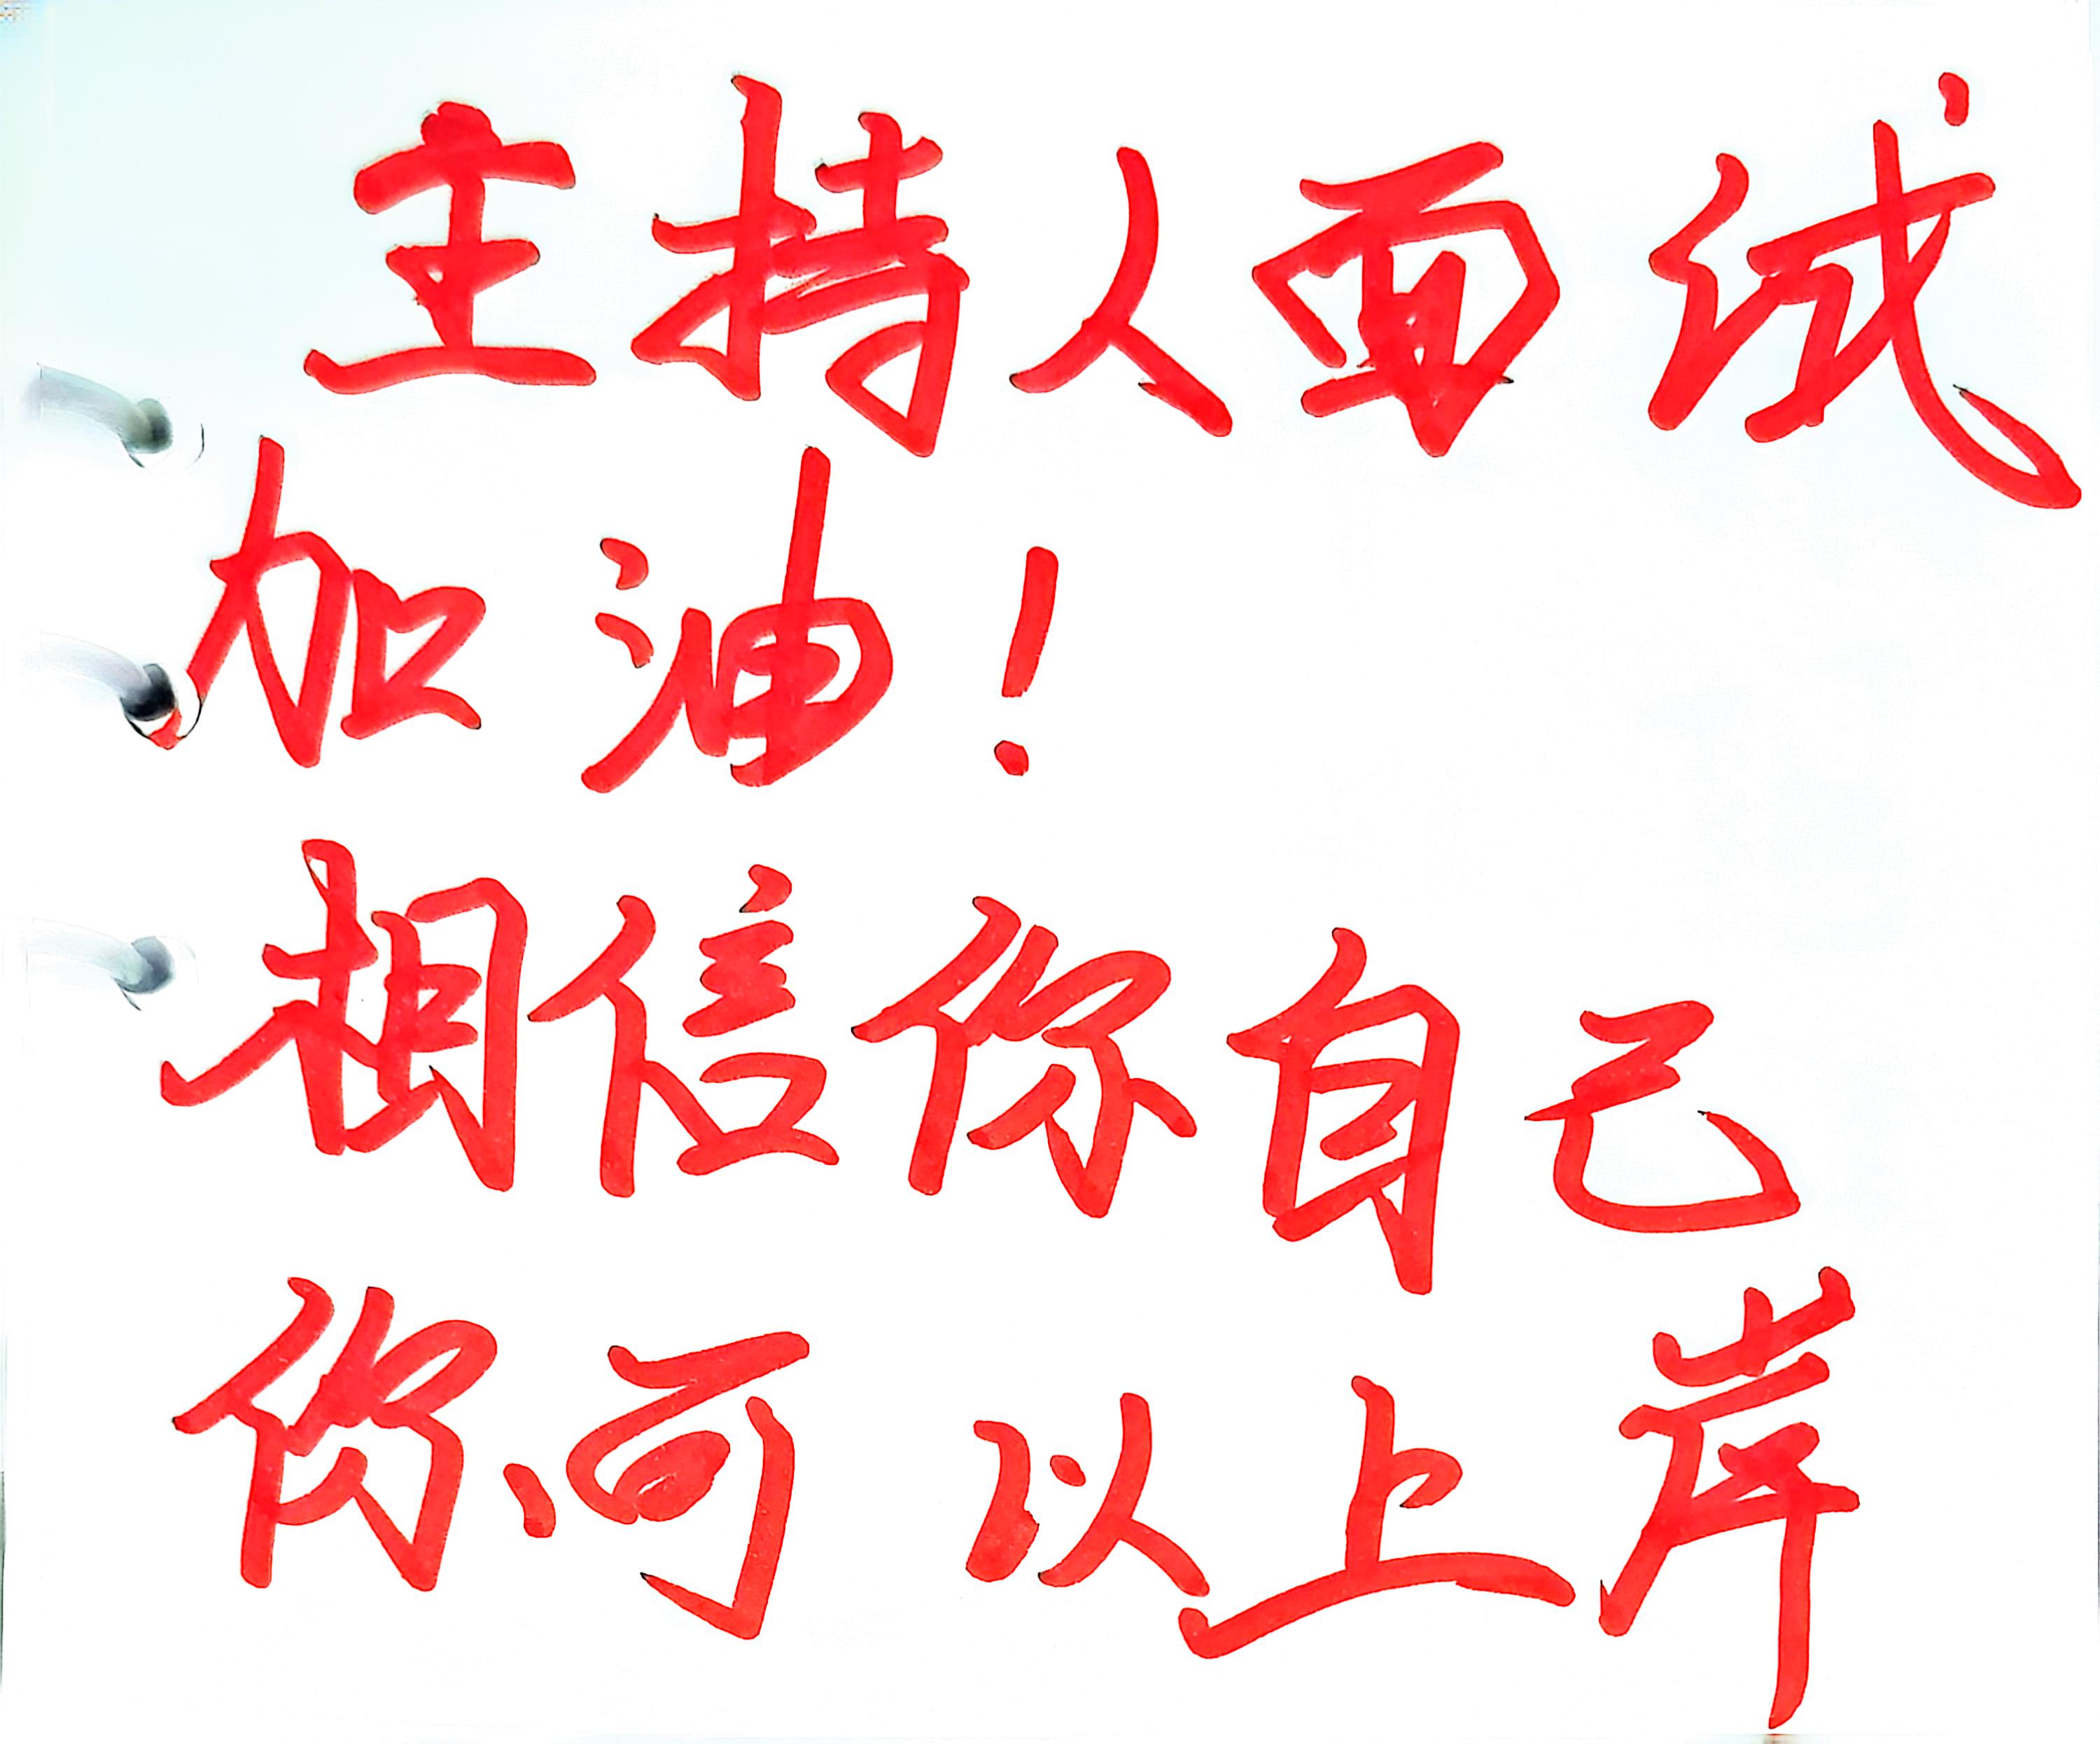 主持人面试
加油！
相信你自己
你可以上岸